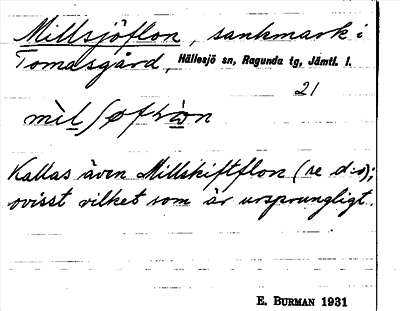 Millsjöflon, sankmark i
Tomasgård, Hällesjö sn, Ragunda tg, Jämtl. l.
21
Kallas även Millskiftflon (se d:o);
ovisst vilket som är ursprungligt.
E. BURMAN 1931